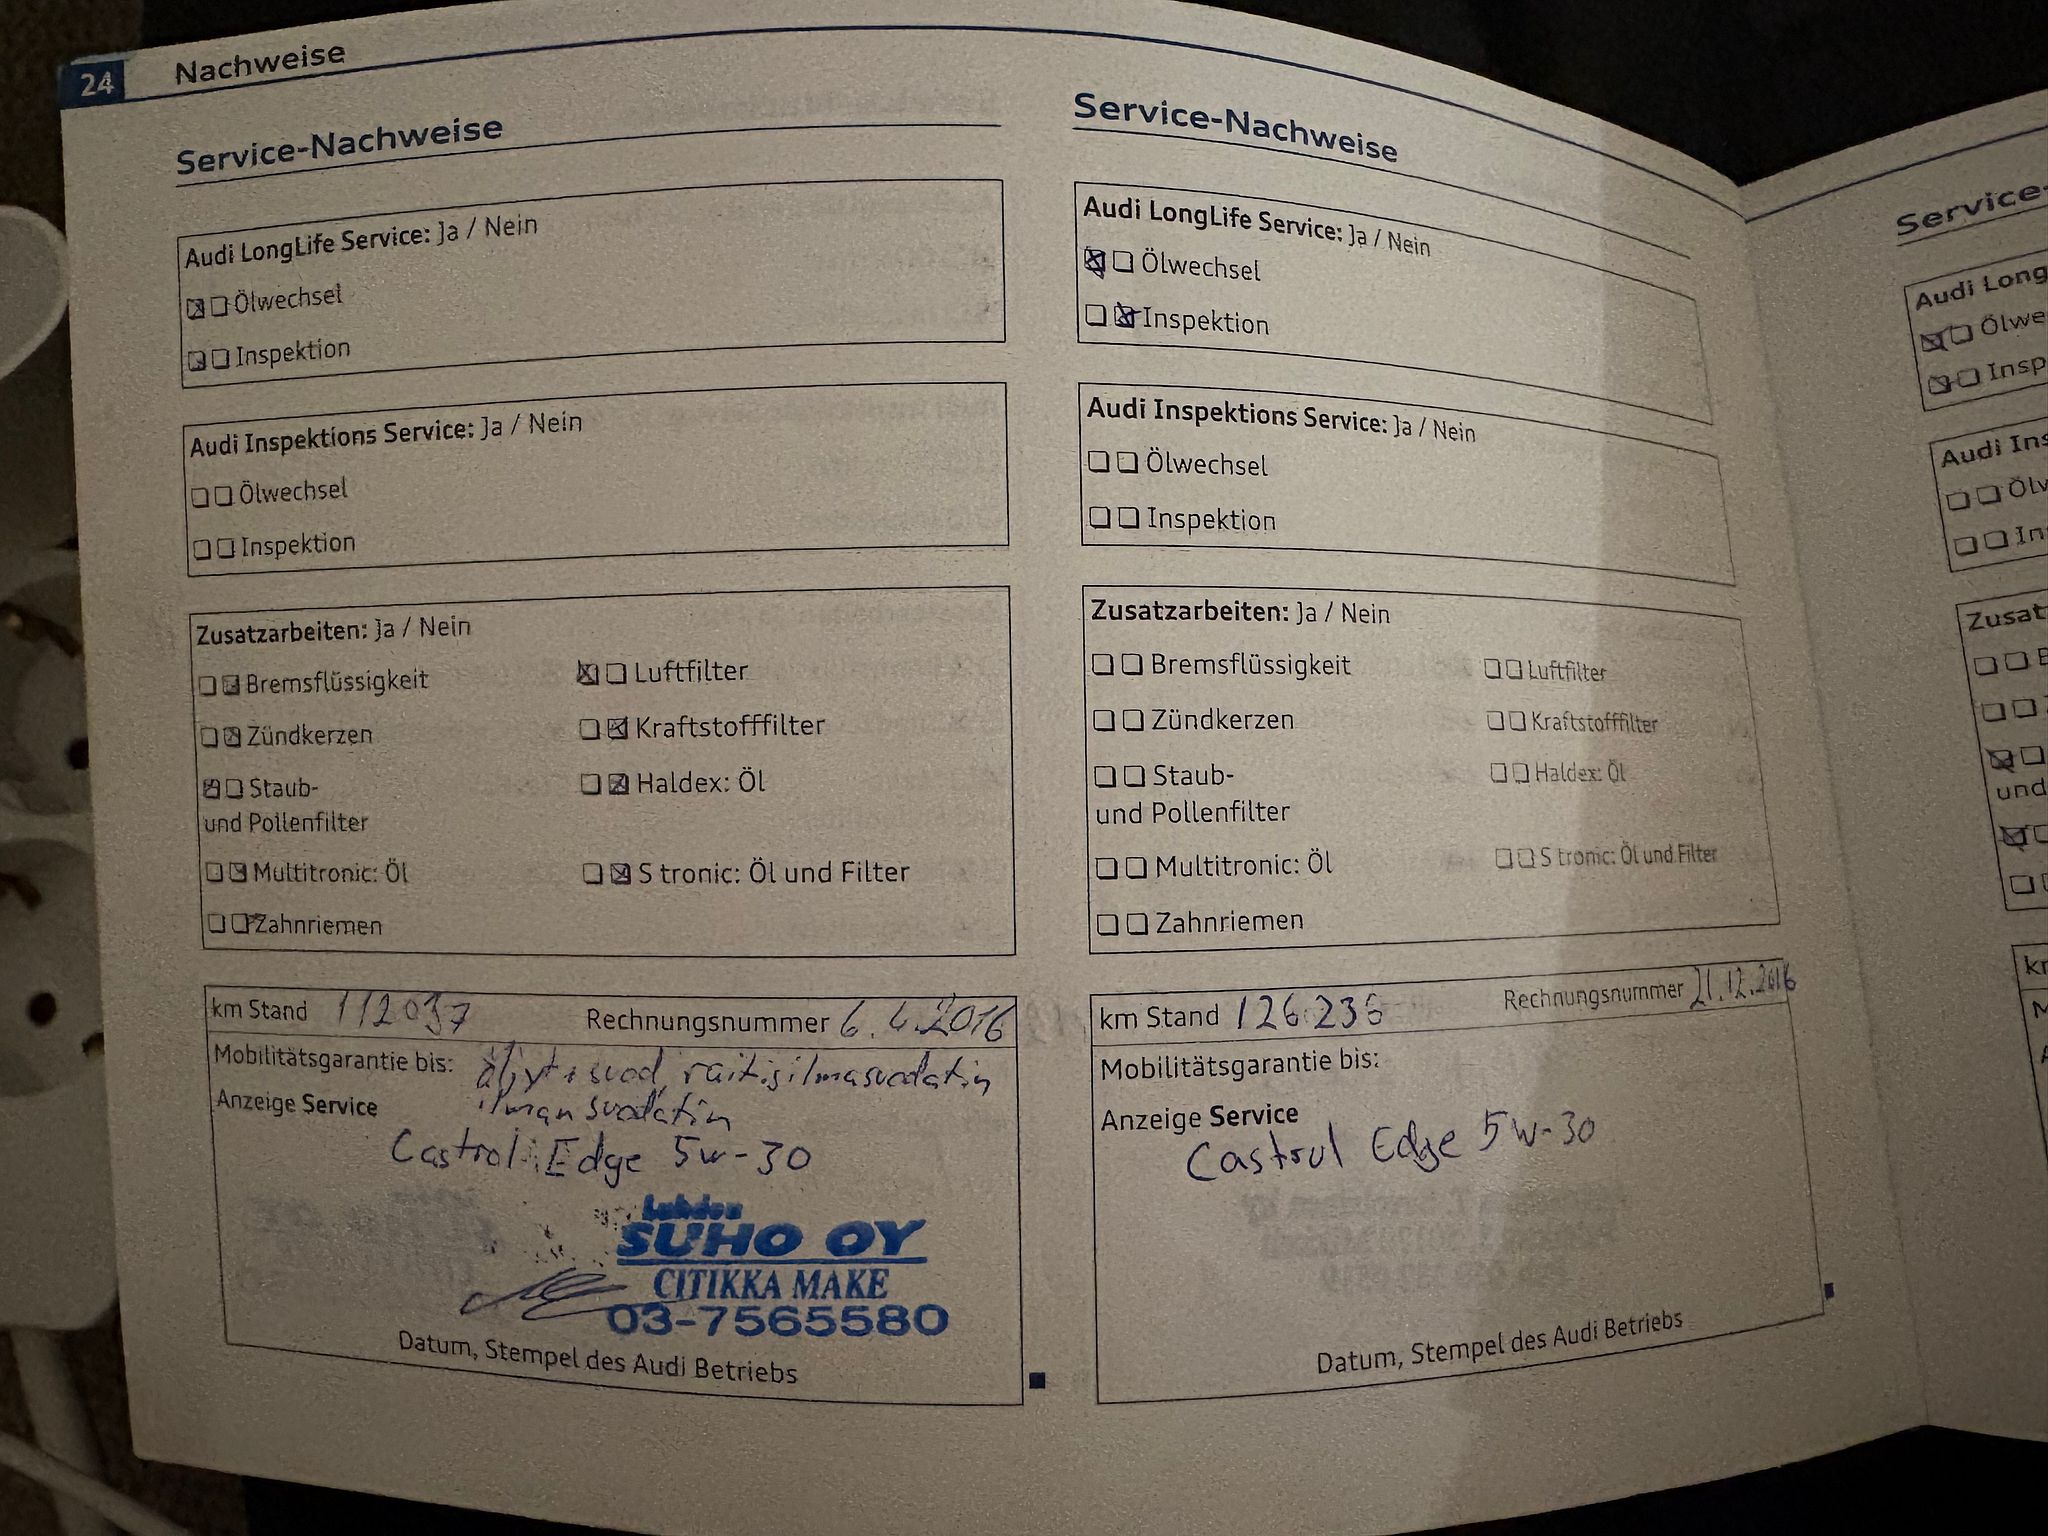 24 Nachweise
Service-Nachweise
Audi LongLife Service: Ja / Nein
Ölwechsel
Inspektion
Audi Inspektions Service: Ja / Nein
Ölwechsel
Inspektion
Zusatzarbeiten: Ja / Nein
Bremsflüssigkeit Luftfilter
Zündkerzen Kraftstofffilter
Staub- Haldex: Öl
und Pollenfilter
Multitronic: Öl S tronic: Öl und Filter
Zahnriemen
km Stand 112037 Rechnungsnummer 6.4.2016
Mobilitätsgarantie bis: öljyt+suod, raitisilmasuodatin
Anzeige Service ilmansuodatin
Castrol Edge 5w-30
Lahden
SUHO OY
CITIKKA MAKE
03-7565580
Datum, Stempel des Audi Betriebs
Service-Nachweise
Audi LongLife Service: Ja / Nein
Ölwechsel
Inspektion
Audi Inspektions Service: Ja / Nein
Ölwechsel
Inspektion
Zusatzarbeiten: Ja / Nein
Bremsflüssigkeit Luftfilter
Zündkerzen Kraftstofffilter
Staub- Haldex: Öl
und Pollenfilter
Multitronic: Öl S tronic: Öl und Filter
Zahnriemen
km Stand 126236 Rechnungsnummer 21.12.2016
Mobilitätsgarantie bis:
Anzeige Service
Castrol Edge 5w-30
Datum, Stempel des Audi Betriebs
Service-
Audi Long
Ölwe
Insp
Audi Ins
Ölw
In
Zusat
und